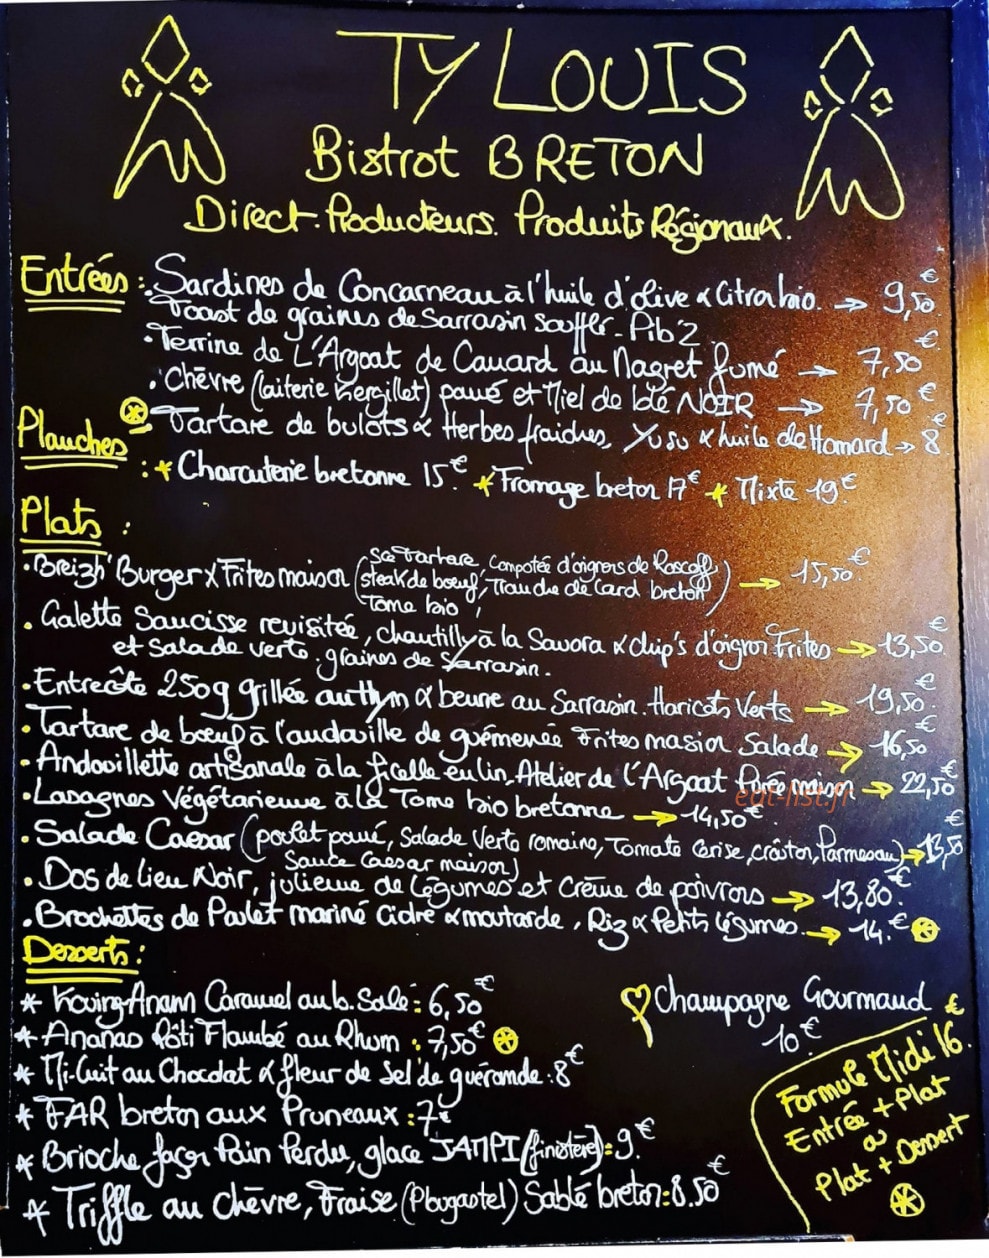 TY LOUIS
Bistrot BRETON
Direct-Producteurs. Produits Régionaux.
Entrées :. Sardines de Concarneau à l'huile d'olive & Citron bio. → 9,50€
Toast de graines de Sarrasin souffler - Pib'2
• Terrine de L'Argoat de Canard au Magret fumé → 7,50€
• Chèvre (laiterie Kergillet) pané et Miel de blé NOIR → 7,50€
Tartare de bulots & Herbes fraiches, Yusu & huile de Homard → 8€
Planches : * Charcuterie bretonne 15€. * Fromage breton 17€ * Mixte 19€
Plats :
• Breizh' Burger & Frites maison (Sce Tartare, Compotée d'oignons de Roscoff → 15,50€
steak de boeuf, Tranche de Lard breton)
Tome bio,
• Galette Saucisse revisitée, chantilly à la Savora & chip's d'oignon Frites → 13,50€
et Salade verte. graines de Sarrasin.
• Entrecôte 250g grillée au thym & beurre au Sarrasin. Haricots Verts → 19,50€
• Tartare de bœuf à l'andouille de guémenée Frites maison Salade → 16,50€
• Andouillette artisanale à la ficelle en lin, Atelier de l'Argoat Purée maison → 22,50€
eat-list.fr
• Lasagnes Végétarienne à la Tome bio bretonne → 14,50€.
• Salade Caesar (poulet pané, Salade Verte romaine, Tomate Cerise, croûton, Parmesan) → 13,50€
Sauce Caesar maison)
• Dos de Lieu Noir, julienne de Légumes et Crème de poivrons → 13,80€.
• Brochettes de Poulet mariné Cidre & moutarde, Riz & Petits légumes → 14.€
Desserts :
* Kouing-Amann Caramel au b. Salé : 6,50€
* Ananas Rôti Flambé au Rhum : 7,50€
* Mi-Cuit au Chocolat & fleur de Sel de guérande : 8€
* FAR breton aux Pruneaux : 7€
* Brioche façon Pain Perdu, glace JAMPI (finistère) : 9.€
* Triffle au chèvre, Fraise (Plougastel) Sablé breton : 8.50€
Champagne Gourmand
10€
Formule Midi 16.€
Entrée + Plat
ou
Plat + Dessert